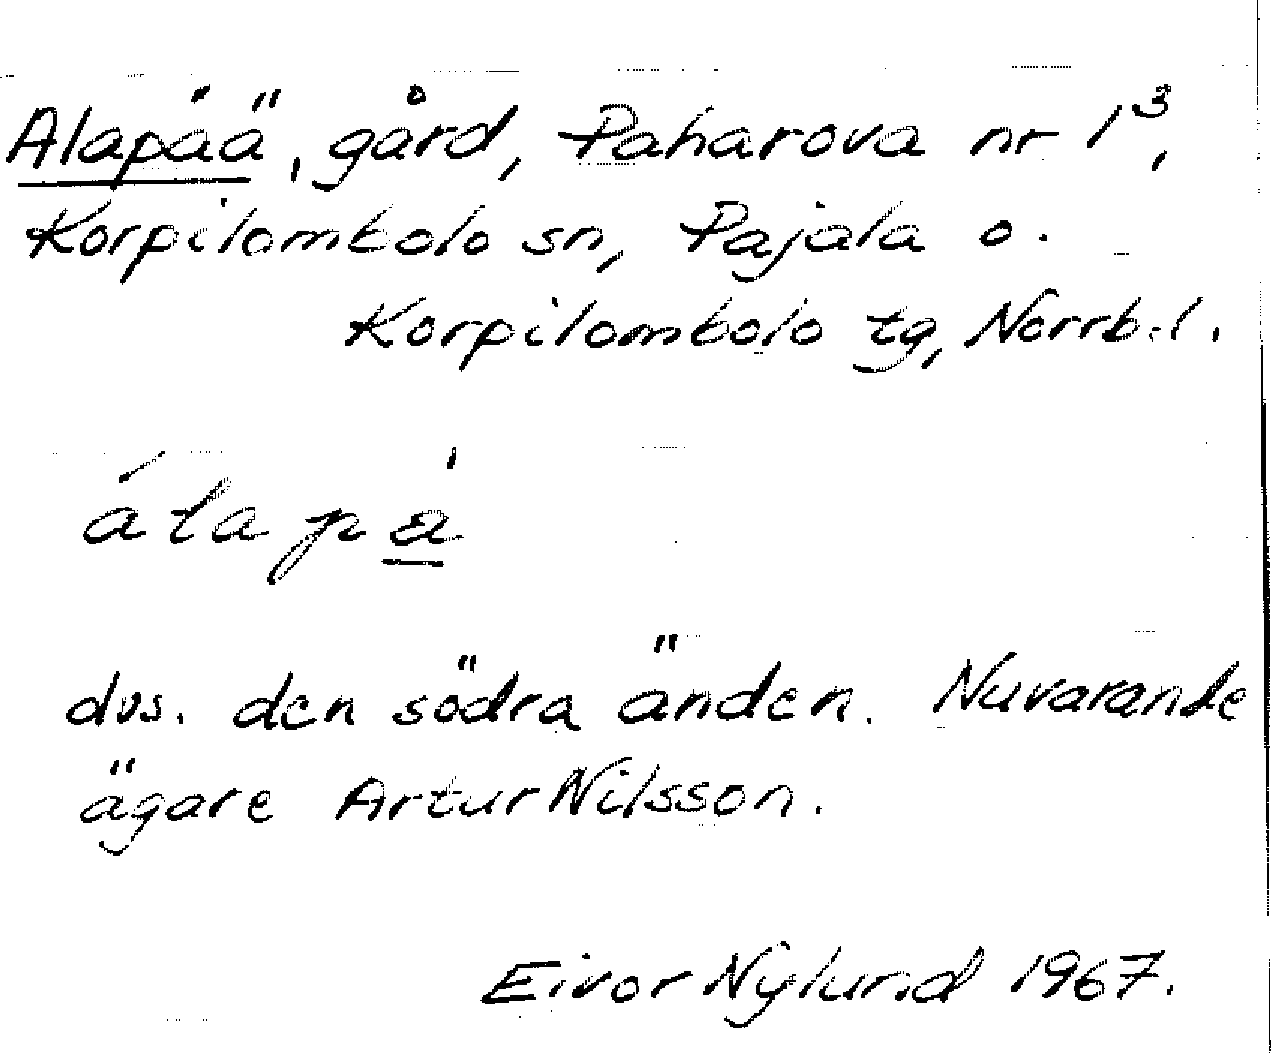 Alapää, gård, Paharova nr 1³,
Korpilombolo sn, Pajala o.
Korpilombolo tg, Norrb.l.
álapà̱
dvs. den södra änden. Nuvarande
ägare Artur Nilsson.
Eivor Nylund 1967.